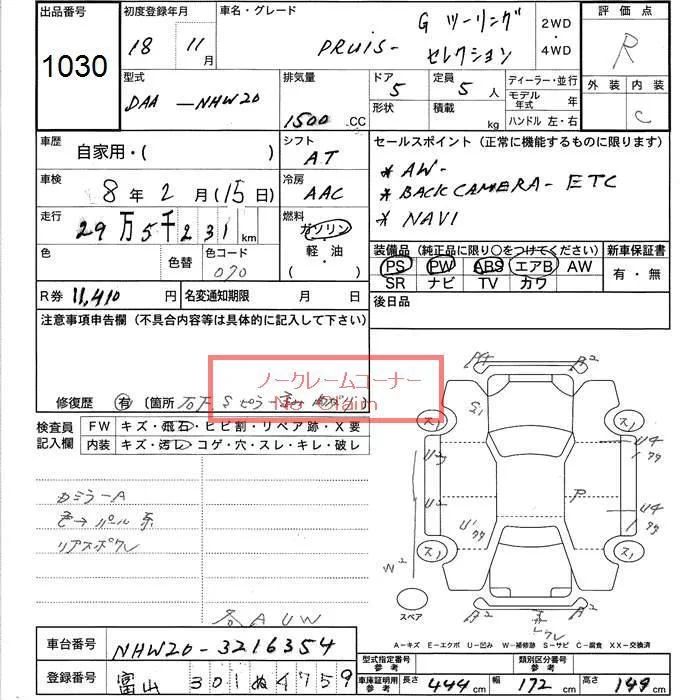 出品番号
1030
初度登録年月
18 11月
車名・グレード
PRUIS- G ツーリング
セレクション
2WD
・
4WD
評価点
R
型式
DAA-NHW20
排気量
1500.CC
ドア
5
形状
定員
5人
積載
kg
ディーラー・並行
モデル年式 年
ハンドル 左・右
外装 内装
C
車歴
自家用・( )
シフト
AT
セールスポイント (正常に機能するものに限ります)
* AW-
* BACK CAMERA- ETC
* NAVI
車検
8年 2月 (15日)
冷房
AAC
走行
29万5千231km
燃料
ガソリン
・
軽・油
( )
色
色替
色コード
070
装備品 (純正品に限り○をつけてください)
PS PW ABS エアB AW
SR ナビ TV カワ
新車保証書
有・無
R券 11,410円
名変通知期限 月 日
後日品
注意事項申告欄 (不具合内容等は具体的に記入して下さい)
ノークレームコーナー
No Claim
修復歴 有 〔箇所
検査員記入欄
FW キズ・飛石・ヒビ割・リペア跡・X要
内装 キズ・汚レ・コゲ・穴・スレ・キレ・破レ
カミラーA
色→パール系
リアスポクレ
各AUW
A2
S1
ス1
ス1
U4
U2
クク
U2
P
U4
U1
クク
クク
ス1
ス1
W2
スペア
A2
A2
クレ
A-キズ E-エクボ U-凹み W-補修跡 S-サビ C-腐食 XX-交換済
車台番号
NHW20-3216354
登録番号
富山 301ぬ4759
型式指定番号
参考
類別区分番号
参考
車庫証明用参考
長さ 444cm
幅 172cm
高さ 149cm